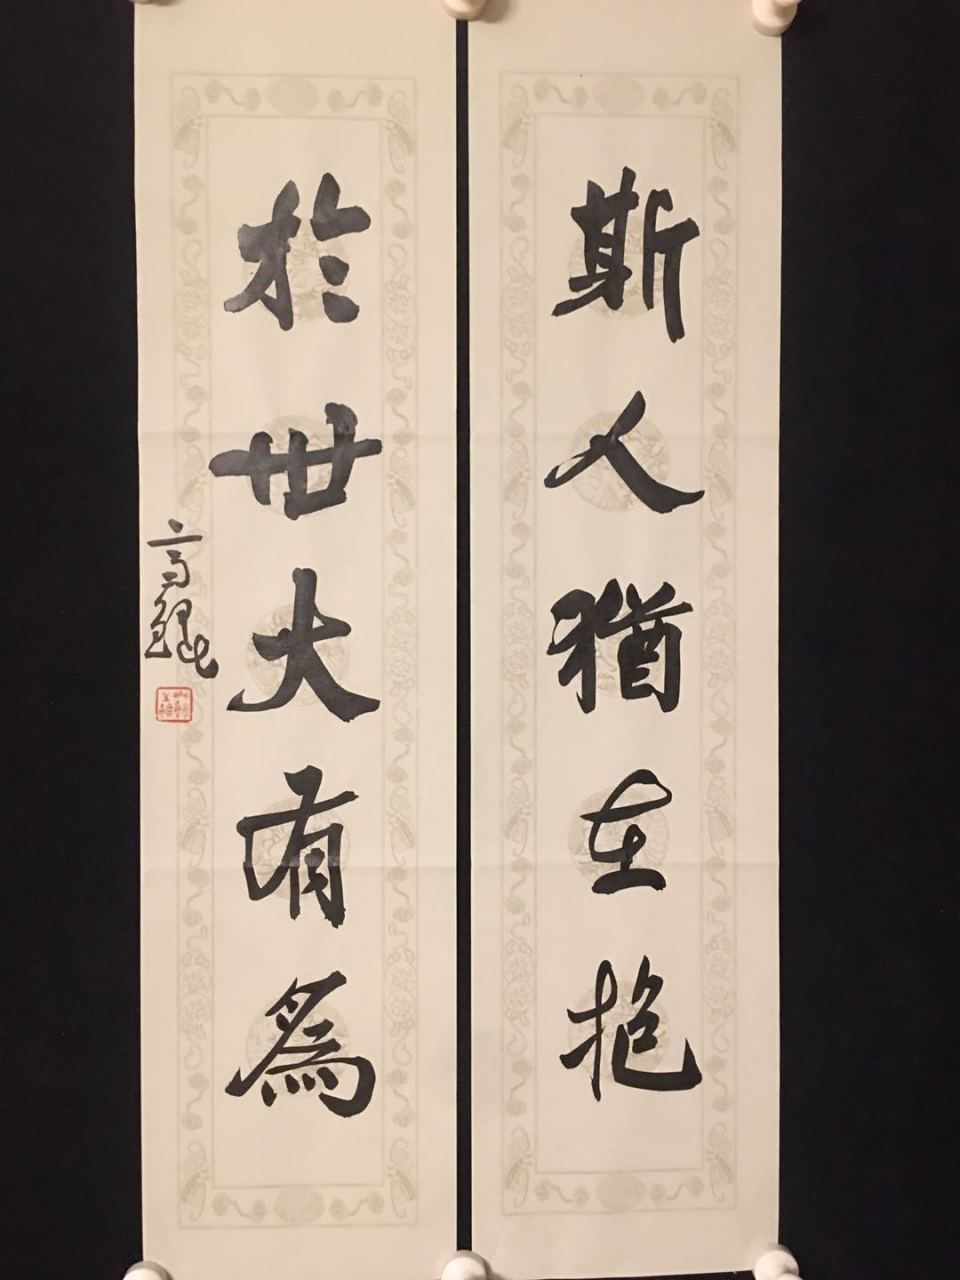 斯人猶在抱
於世大有為